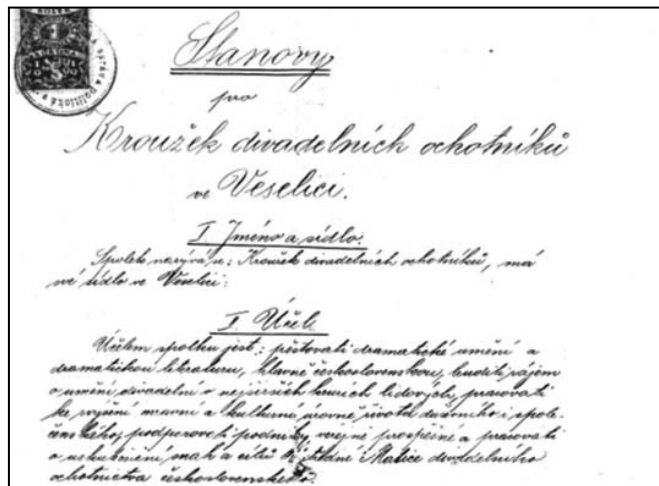 Stanovy
pro
Kroužek divadelních ochotníků
ve Veselici.
I Jméno a sídlo.
Spolek nazývá se: Kroužek divadelních ochotníků, má
své sídlo ve Veselici:
I. Účel
Účelem spolku jest: pěstovati dramatické umění a
dramatickou literaturu, hlavně československou, buditi zájem
o umění divadelní v nejširších kruzích lidových, pracovati
ke zvýšení mravní a kulturní úrovně života duševního i spole-
čenského, podporovati podniky veřejně prospěšné a pracovati
o uskutečnění snah a cílů Ústřední Matice divadelního
ochotnictva československého.